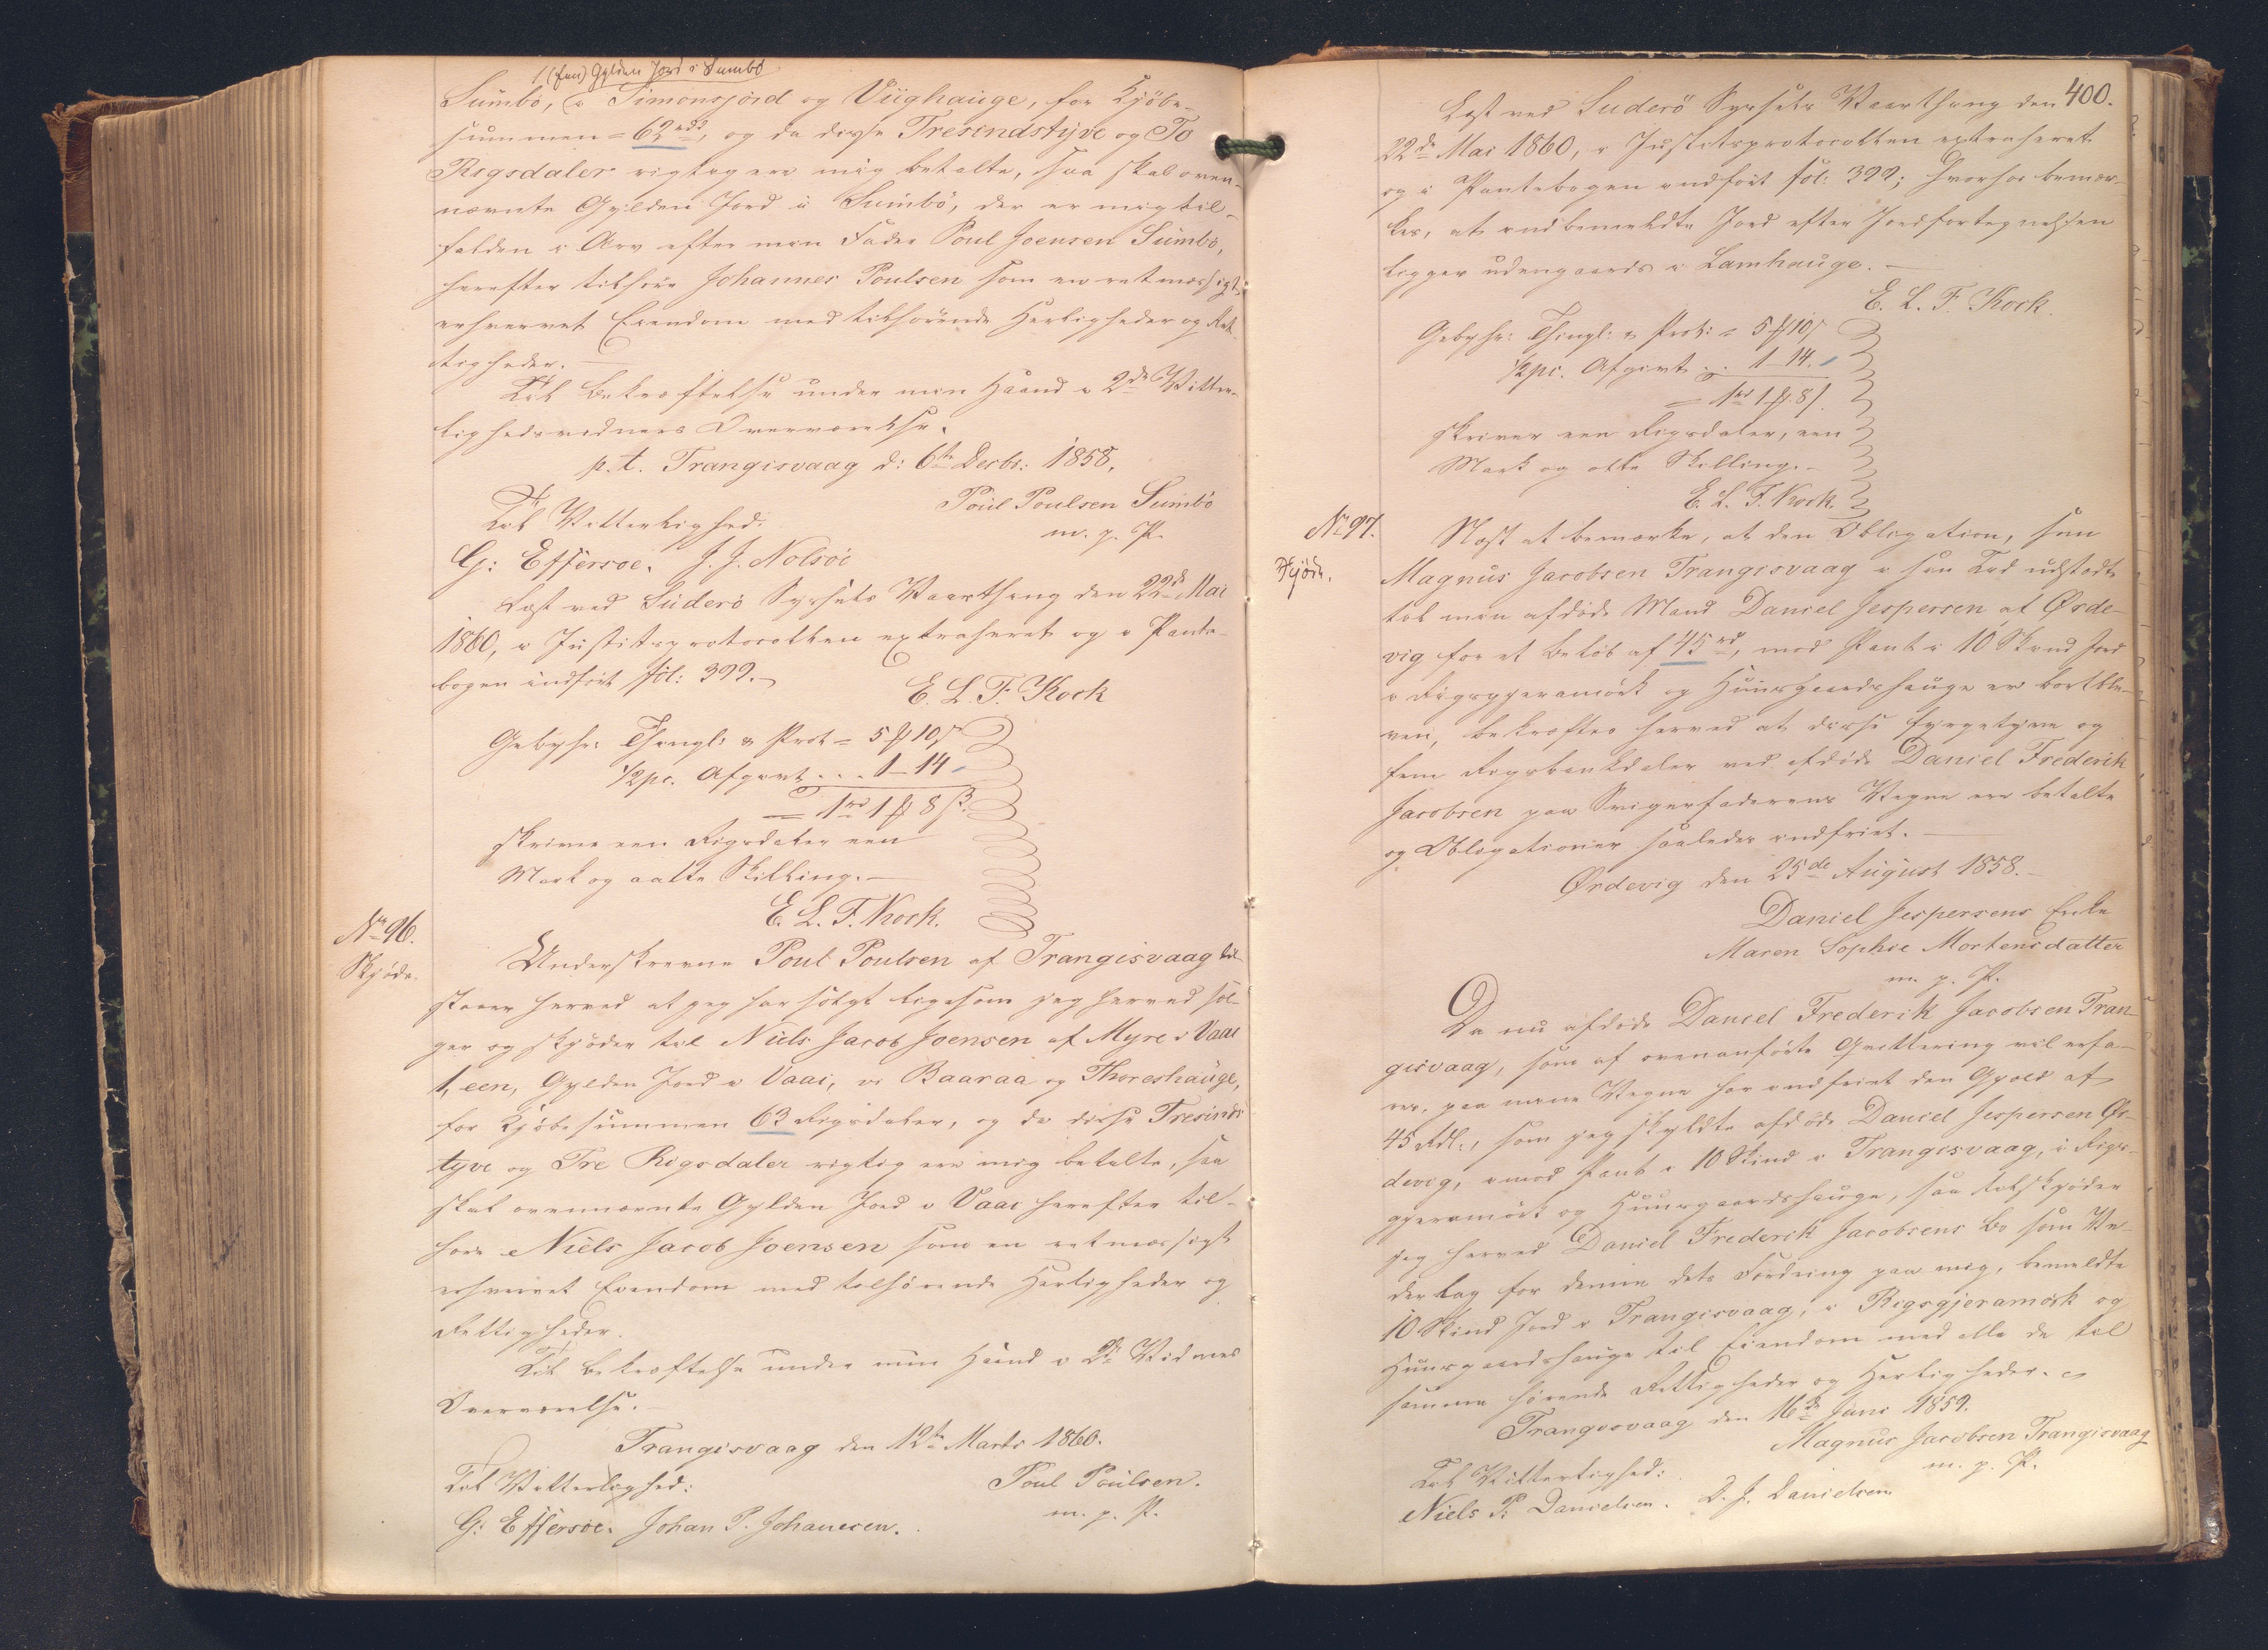 1 (een) Gylden Jord i Sumbö
Sumbö, i Timonsjord og Viighauge, for Kjöbe-
summen = 62 rdl, og da disse Tresindstyve og To
Rigsdaler rigtig ere mig betalte, saa skal oven-
nævnte Gylden Jord i Sumbö, der er mig til-
falden i Arv efter min Fader Poul Joensen Sumbö,
herefter tilhøre Johannes Poulsen som en retmæssigt
erhvervet Eiendom med tilhørende Herligheder og Ret-
tigheder.
Til Bekræftelse under min Haand i 2de Vitter-
lighedsvidners Overværelse.
p.t. Trangisvaag d: 6te Decbr: 1858.
Poul Poulsen Sumbö
m. p. P.
Til Vitterlighed:
G: Effersöe. J. J. Nolsöe
Læst ved Suderö Syssels Vaarthing den 22de Mai
1860, i Justitsprotocollen extraheret og i Pante-
bogen indført fol: 399.
E. L. F. Kock
Gebyhr: Thingl: & Prot = 5 ℔ 10 ß
1/2 pc. Afgivt . . . 1 – 14
= 1 rd 1 ℔ 8 ß.
skriver een Rigsdaler een
Mark og aatte Skilling.
E. L. F. Kock.
No 96.
Skjøde.
Underskrevne Poul Poulsen af Trangisvaag til-
staaer herved at jeg har solgt ligesom jeg herved sæl-
ger og skjøder til Niels Jacob Joensen af Myre i Vaai
1, een, Gylden Jord i Vaai, i Baaraa og Thoreshauge,
for Kjöbesummen 63 Rigsdaler, og da disse Tresinds
tyve og Tre Rigsdaler rigtig ere mig betalte, saa
skal ovennævnte Gylden Jord i Vaai herefter til-
høre Niels Jacob Joensen som en retmæssigt
erhvervet Eiendom med tilhørende Herligheder og
Rettigheder.
Til Bekræftelse under min Haand i 2de Vidners
Overværelse.
Trangisvaag den 12te Marts 1860.
Til Vitterlighed:
Poul Poulsen.
m. p. P.
G: Effersöe. Johan P. Johanesen.
400.
Læst ved Suderö Syssels Vaarthing den
22de Mai 1860, i Justitsprotocollen extraheret
og i Pantebogen indført fol: 399; hvorhos bemær-
kes, at indbemeldte Jord efter Jordfortegnelsen
ligger udengaards i Lamhauge.
E. L. F. Kock.
Gebyhr: Thingl: & Prot: = 5 ℔ 10 ß
1/2 pc. Afgivt . . 1 – 14.
= 1 rd 1 ℔ 8 ß.
skriver een Rigsdaler, een
Mark og otte Skilling.
E. L. F. Kock.
No 97.
Skjøde.
Næst at bemærke, at den Obligation, som
Magnus Jacobsen Trangisvaag i sin Tid udstedte
til min afdøde Mand Daniel Jespersen af Ørde-
vig for et Beløb af 45 rd, mod Pant i 10 Skind Jord
i Rigsgjeramörk og Huusgaardshauge er bortble-
ven, bekræftes herved at disse fyrgetyve og
fem Rigsbankdaler ved afdøde Daniel Frederik
Jacobsen paa Svigerfaderens Vegne ere betalte
og Obligationen saaledes indfriet.
Ørdevig den 25de August 1858.
Daniel Jespersens Enke
Maren Sophie Mortensdatter
m. p. P.
Da nu afdøde Daniel Frederik Jacobsen Tran-
gisvaag, som af ovenanførte Qvittering vil erfa-
res, paa mine Vegne har indfriet den Gjæld af
45 Rdl., som jeg skyldte afdøde Daniel Jespersen Ør-
devig, imod Pant i 10 Skind i Trangisvaag, i Rigs-
gjeramörk og Huusgaardshauge, saa skjøder
jeg herved Daniel Frederik Jacobsens Bo som Ve-
derlag for denne dets Fordring paa mig, bemeldte
10 Skind Jord i Trangisvaag, i Rigsgjeramörk og
Huusgaardshauge til Eiendom med alle de til
samme hørende Rettigheder og Herligheder.
Trangisvaag den 16de Juni 1859.
Magnus Jacobsen Trangisvaag
m. p. P.
Til Vitterlighed:
Niels P. Danielsen. D. J. Danielsen